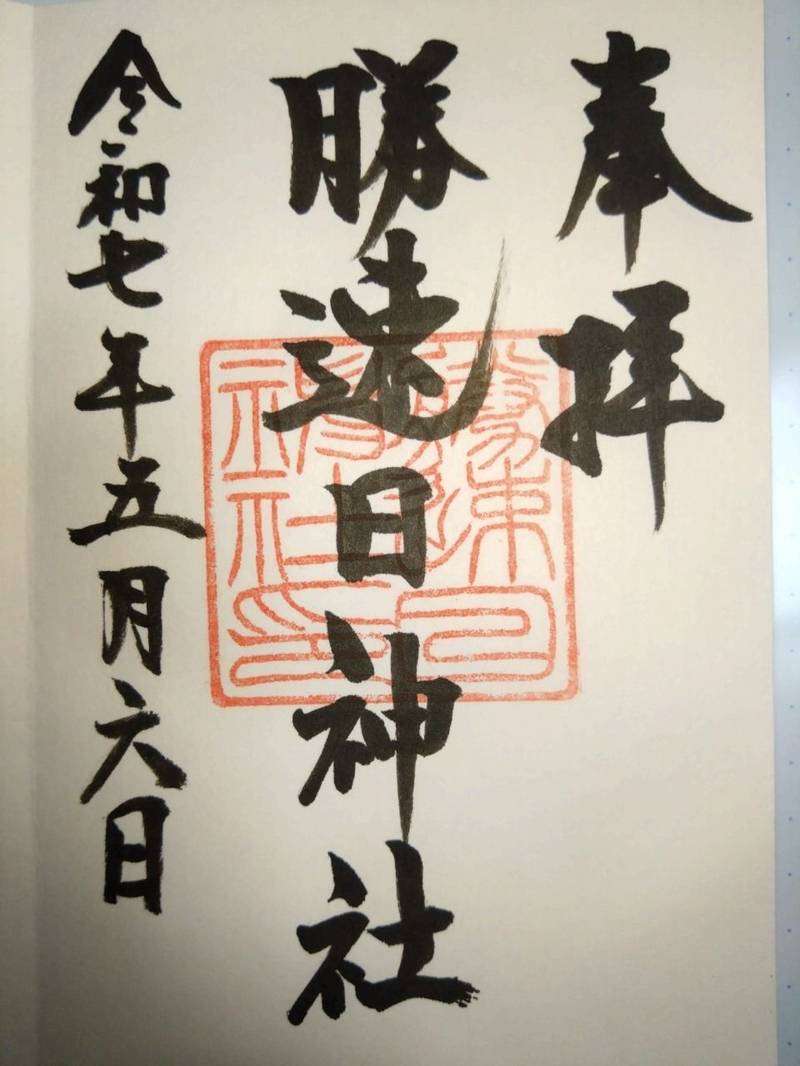 奉拝
勝速日神社
令和七年五月六日